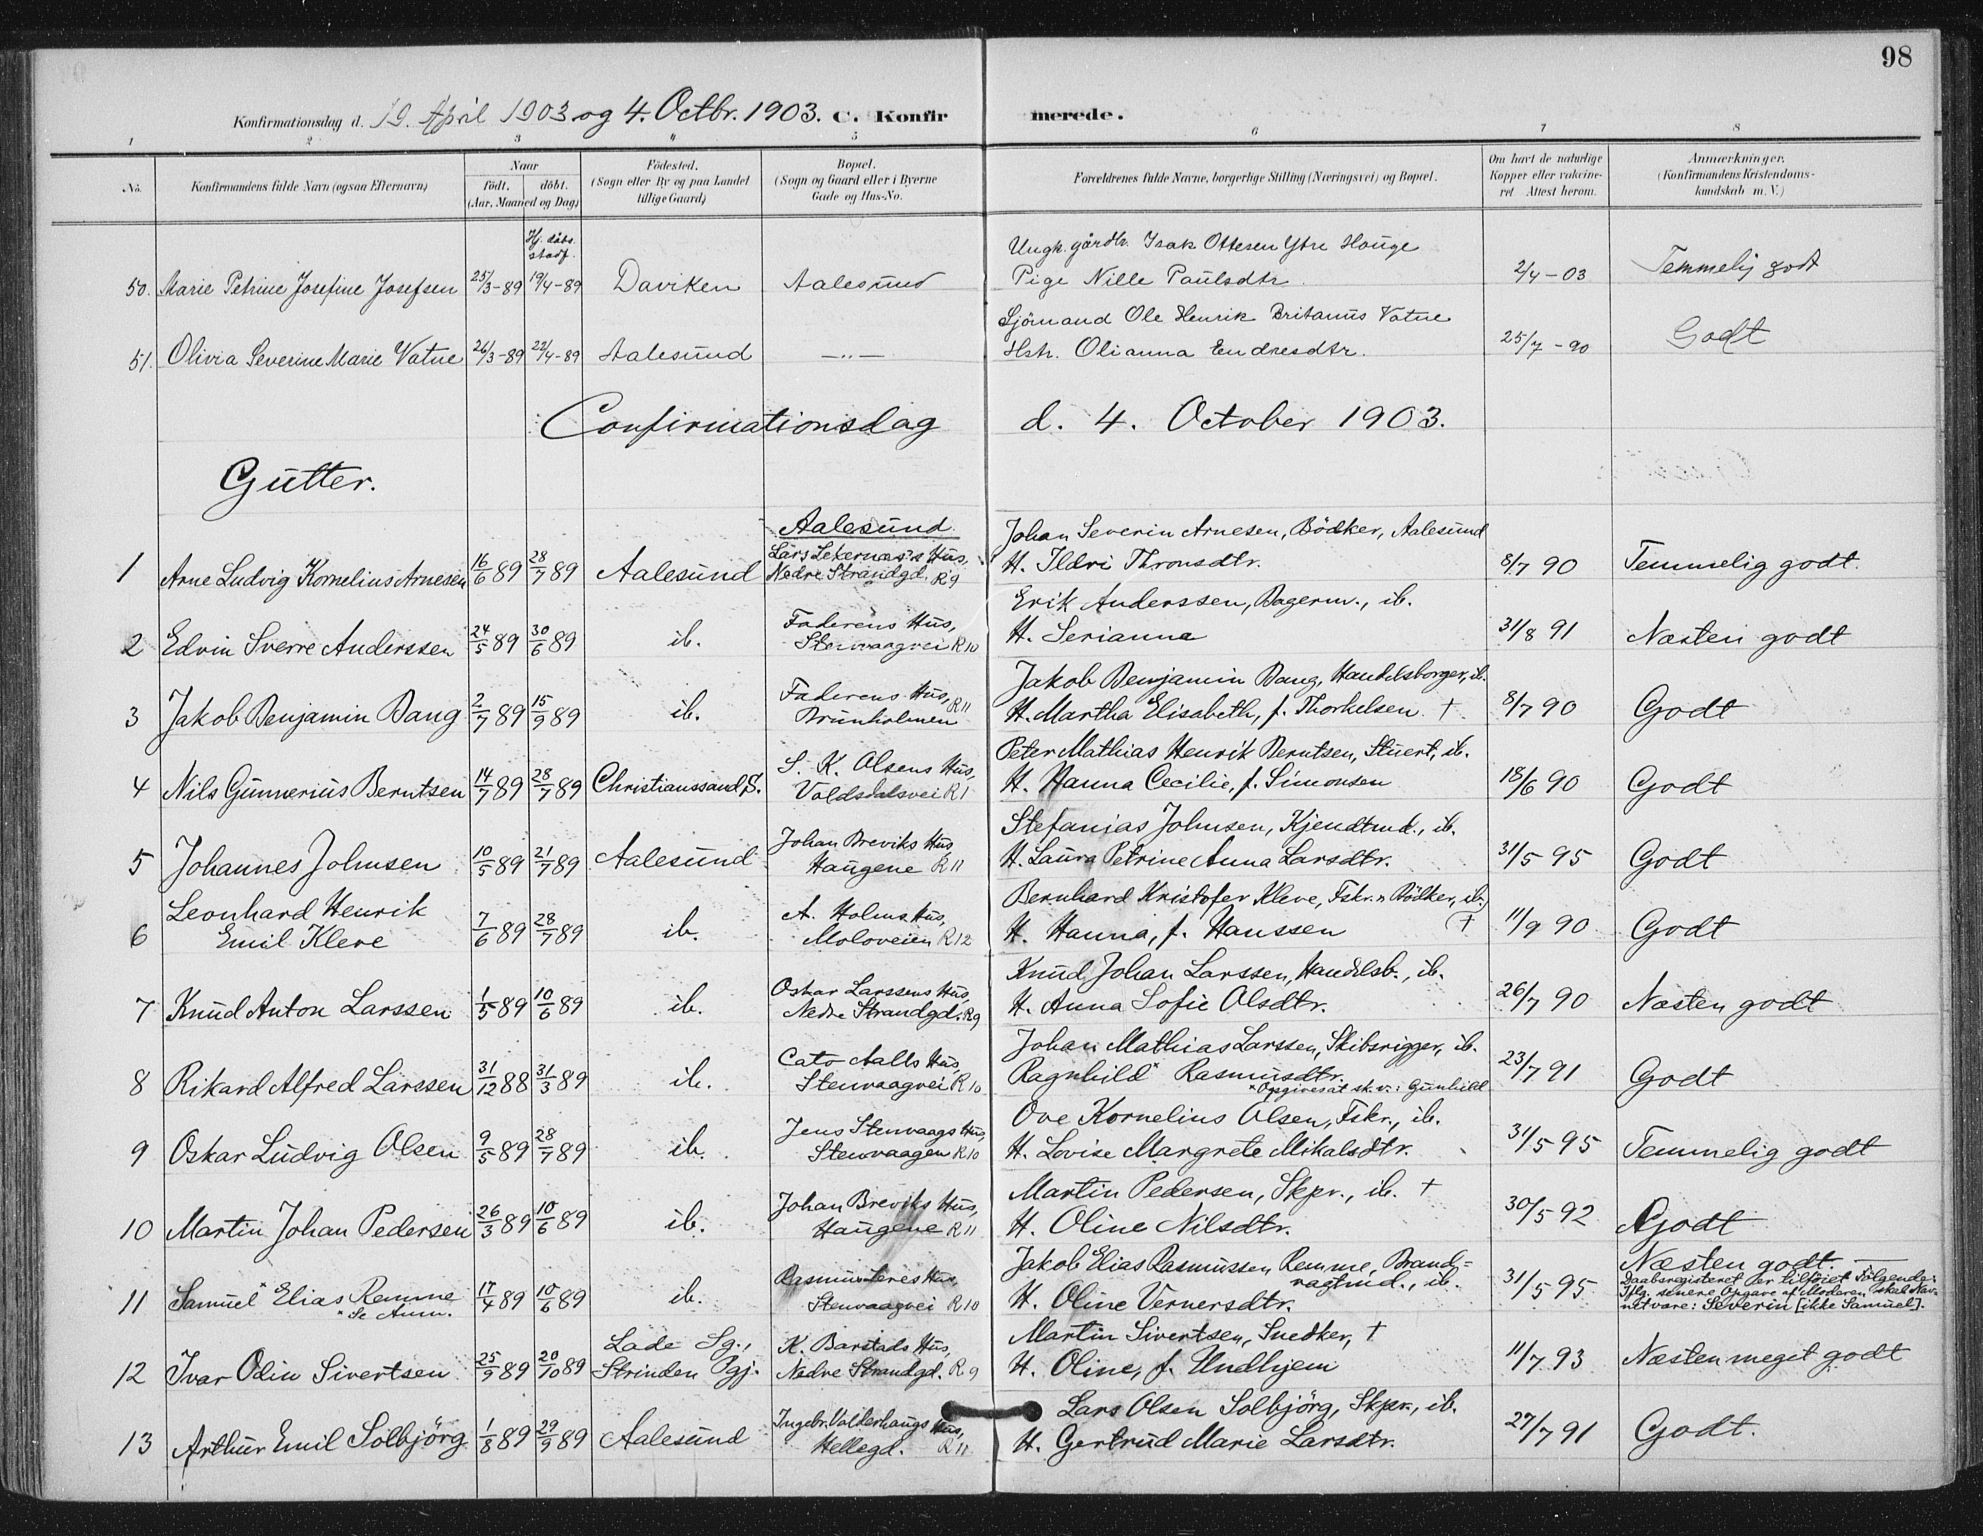 98
Konfirmationsdag d. 19. April 1903 og 4. Octbr. 1903. C. Konfirmerede.
1 2 3 4 5 6 7 8
No. Konfirmandens fulde Navn (ogsaa Efternavn) Naar födt. döbt. (Aar, Maaned og Dag) Födested. (Sogn eller By og paa Landet tillige Gaard) Bopæl. (Sogn og Gaard eller i Byerne Gade og Hus-No. Forældrenes fulde Navne, borgerlige Stilling (Næringsvei) og Bopæl. Om havt de naturlige Kopper eller vaccineret Attest herom. Anmærkninger. (Konfirmandens Kristendomskundskab m. V.)
Hj. döbt. stadf. Ungk. gårdbr. Isak Ottesen Ytre Hauge
50. Marie Petrine Josefine Josefsen 25/3-89 19/4-89 Daviken Aalesund Pige Nille Paulsdtr. 2/4-03 Temmelig godt
Sjömand Ole Henrik Britanus Vatne
51. Olivia Severine Marie Vatne 26/3-89 22/4-89 Aalesund —„— Hstr. Olianna Endresdtr. 25/7-90 Godt
Confirmationsdag d. 4. October 1903.
Gutter.
Aalesund.
Lars Lekernæs's Hus, Johan Severin Arnesen, Bödker, Aalesund
1 Arne Ludvig Kornelius Arnesen 16/6 89 28/7 89 Aalesund Nedre Strandgd. R9 H. Ildri Thronsdtr. 8/7 90 Temmelig godt.
Faderens Hus, Erik Anderssen, Bagerm., ib.
2 Edvin Sverre Anderssen 24/5 89 30/6 89 ib. Stenvaagvei R10 H. Serianna 31/8 91 Næsten godt
Faderens Hus, R11 Jakob Benjamin Bang, Handelsborger, ib.
3 Jakob Benjamin Bang 2/7 89 15/9 89 ib. Brunholmen H. Martha Elisabeth, f. Thorkelsen. † 8/7 90 Godt
S. K. Olsens Hus, Peter Mathias Henrik Berntsen, Stuert, ib.
4 Nils Gunnerius Berntsen 14/7 89 28/7 89 Christianssand S. Voldsdalsvei R1 H. Hanna Cecilie, f. Simonsen 18/6 90 Godt
Johan Breviks Hus Stefanias Johnsen, Kjendtmd., ib.
5 Johannes Johnsen 10/5 89 21/7 89 Aalesund Haugene R11 H. Laura Petrine Anna Larsdtr. 31/5 95 Godt
Leonhard Henrik A. Holms Hus, Bernhard Kristofer Kleve, Fskr. & Bödker, ib.
6 Emil Kleve 7/6 89 28/7 89 ib. Moloveien R12 H. Hanna, f. Hanssen (†) 11/9 90 Godt
Oskar Larssens Hus, Knud Johan Larssen, Handelsb., ib.
7 Knud Anton Larssen 1/5 89 10/6 89 ib. Nedre Strandgd. R9 H. Anna Sofie Olsdtr. 26/7 90 Næsten godt
Cato Aalls Hus, Johan Mathias Larssen, Skibsrigger, ib.
8 Rikard Alfred Larssen 31/12 88 31/3 89 ib. Stenvaagvei R10 Ragnhild* Rasmusdtr. 23/7 91 Godt
*Opgives at sk. v.: Gunhild
Jens Stenvaags Hus, Ove Kornelius Olsen, Fskr., ib.
9 Oskar Ludvig Olsen 9/5 89 28/7 89 ib. Stenvaagen R10 H. Lovise Margrete Mikalsdtr. 31/5 95 Temmelig godt
Johan Breviks Hus, Martin Pedersen, Skpr., ib. †
10 Martin Johan Pedersen 26/3 89 10/6 89 ib. Haugene R11 H. Oline Nilsdtr. 30/5 92 Godt
Hus, Jakob Elias Rasmussen Remme, Brandvagtmd., ib. Næsten godt. —
11 Samuel* Elias Remme 17/4 89 10/6 89 ib. Stenvaagvei R10 H. Oline Vernersdtr. 31/5 95 Daabsregisteret er tilföiet Følgende:
*Se Anm. Iflg. senere Opgave af Moderen skal Navnet være: Severin [ikke Samuel].
Lade Sg., K. Barstads Hus, Martin Sivertsen, Snedker, †
12 Ivar Odin Sivertsen 25/9 89 20/10 89 Strinden Pgj. Nedre Strandgd. R9 H. Oline, f. Undhjem 11/7 93 Næsten meget godt
Ingebr. Valderhaugs Hus, Lars Olsen Solbjörg, Skpr., ib.
13 Arthur Emil Solbjörg 1/8 89 29/9 89 Aalesund Hellegd. R11 H. Gertrud Marie Larsdtr. 27/7 91 Godt.